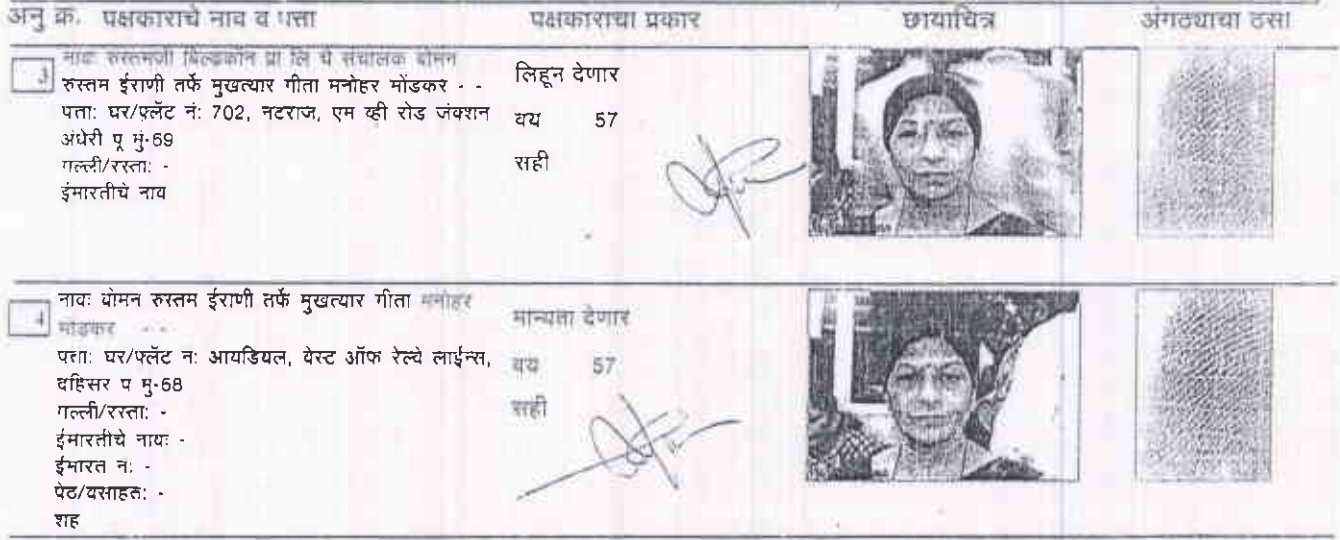 अनु क्र. पक्षकाराचे नाव व पत्ता पक्षकाराचा प्रकार छायाचित्र अंगठ्याचा ठसा
3 नावः रुस्तमजी बिल्डकॉन प्रा लि चे संचालक बोमन
रुस्तम ईराणी तर्फे मुखत्यार गीता मनोहर मोंडकर - -
पत्ता: घर/फ्लॅट नं: 702, नटराज, एम व्ही रोड जंक्शन
अंधेरी पू मुं-69
गल्ली/रस्ता: -
ईमारतीचे नाव
लिहून देणार
वय 57
सही
4 नावः बोमन रुस्तम ईराणी तर्फे मुखत्यार गीता मनोहर
मोंडकर - -
पत्ता: घर/फ्लॅट नः आयडियल, वेस्ट ऑफ रेल्वे लाईन्स,
दहिसर प मु-68
गल्ली/रस्ता: -
ईमारतीचे नावः -
ईमारत नः -
पेठ/वसाहतः -
शह
मान्यता देणार
वय 57
सही